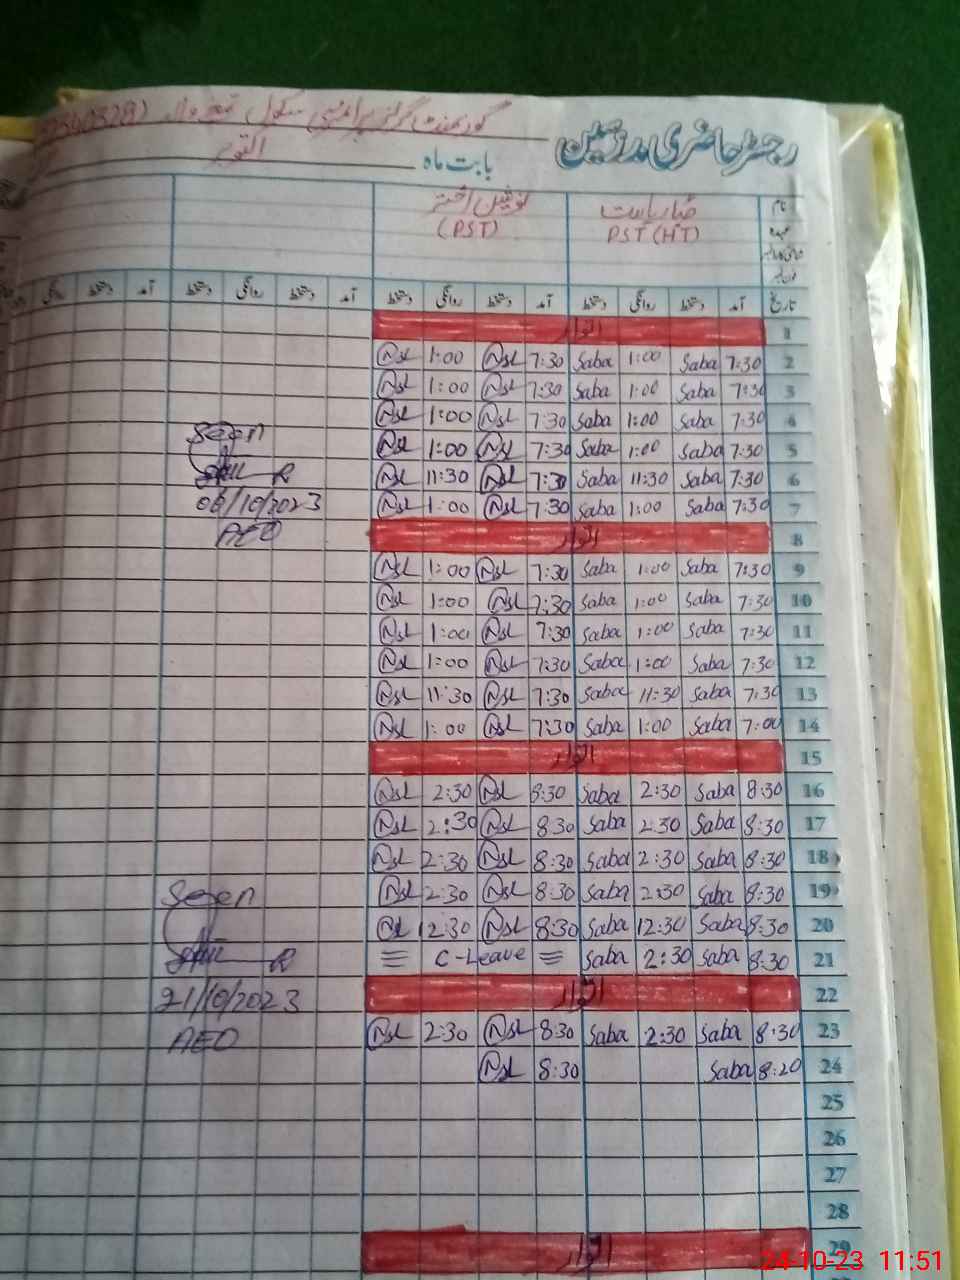 گورنمنٹ گرلز پرائمری سکول
رجسٹر حاضری مدرسین
بابت ماہ اکتوبر
نام
صبا ریاست نوشین اختر
PST (HT) (PST)
تاریخ آمد دستخط روانگی دستخط آمد دستخط روانگی دستخط آمد دستخط روانگی دستخط آمد دستخط روانگی
1 اتوار
Nsl 1:00 Nsl 7:30 Saba 1:00 Saba 7:30 2
Nsl 1:00 Nsl 7:30 Saba 1:00 Saba 7:30 3
Nsl 1:00 Nsl 7:30 Saba 1:00 Saba 7:30 4
Seen
Nsl 1:00 Nsl 7:30 Saba 1:00 Saba 7:30 5
Nsl 11:30 Nsl 7:30 Saba 11:30 Saba 7:30 6
06/10/2023 Nsl 1:00 Nsl 7:30 Saba 1:00 Saba 7:30 7
AEO
8 اتوار
Nsl 1:00 Nsl 7:30 Saba 1:00 Saba 7:30 9
Nsl 1:00 Nsl 7:30 Saba 1:00 Saba 7:30 10
Nsl 1:00 Nsl 7:30 Saba 1:00 Saba 7:30 11
Nsl 1:00 Nsl 7:30 Saba 1:00 Saba 7:30 12
Nsl 11:30 Nsl 7:30 Saba 11:30 Saba 7:30 13
Nsl 1:00 Nsl 7:30 Saba 1:00 Saba 7:00 14
15 اتوار
Nsl 2:30 Nsl 8:30 Saba 2:30 Saba 8:30 16
Nsl 2:30 Nsl 8:30 Saba 2:30 Saba 8:30 17
Nsl 2:30 Nsl 8:30 Saba 2:30 Saba 8:30 18
Seen Nsl 2:30 Nsl 8:30 Saba 2:30 Saba 8:30 19
Nsl 12:30 Nsl 8:30 Saba 12:30 Saba 8:30 20
C-Leave Saba 2:30 Saba 8:30 21
21/10/2023
22 اتوار
AEO Nsl 2:30 Nsl 8:30 Saba 2:30 Saba 8:30 23
Nsl 8:30 Saba 8:20 24
25
26
27
28
29 اتوار
24-10-23 11:51